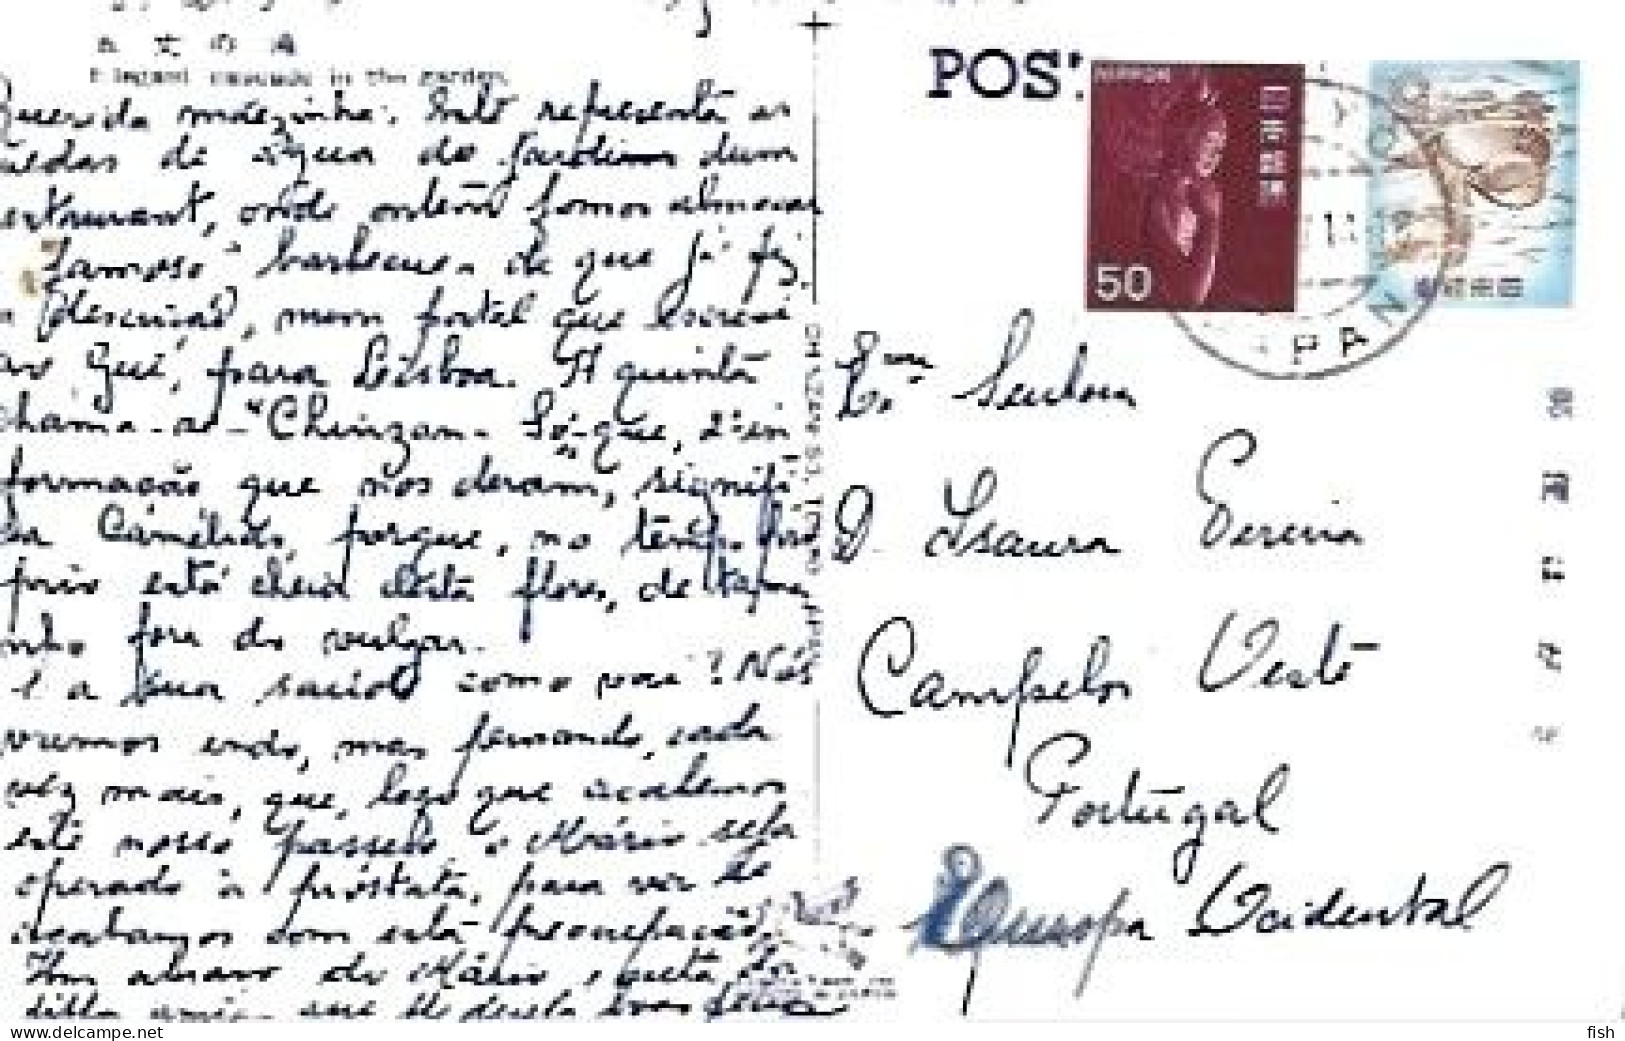 五丈の滝
Elegant cascade in the garden.
Querida mãezinha: Este representa as
quedas de água do Jardim dum
restaurant, onde ontem fomos almoçar
"famoso" barbecue - de que já fiz
a descrição, num postal que escrevi
ao Gué, para Lisboa. A quinta
chama-se - "Chinzan-Só" que, 2º in
formação que nos deram, signifi
ca Camélias, porque, no tempo pró
prio está cheia desta flores, de tama
nho fora do vulgar.
E a sua saúde como vai? Nós
vamos indo, mas pensando, cada
vez mais, que, logo que acabemos
este nosso passeio o Mário seja
operado à próstata, para ver se
acabamos com esta preocupação.
Um abraço do Mário, e desta
amiga que lhe deseja boas
POST
NIPPON
日本郵便
50
日本郵便
JAPAN
CHINZAN-SO, TOKYO, JAPAN
Exma Senhora
D. Isaura Pereira
Campelos Oeste
Portugal
Europa Ocidental
www.delcampe.net
fish